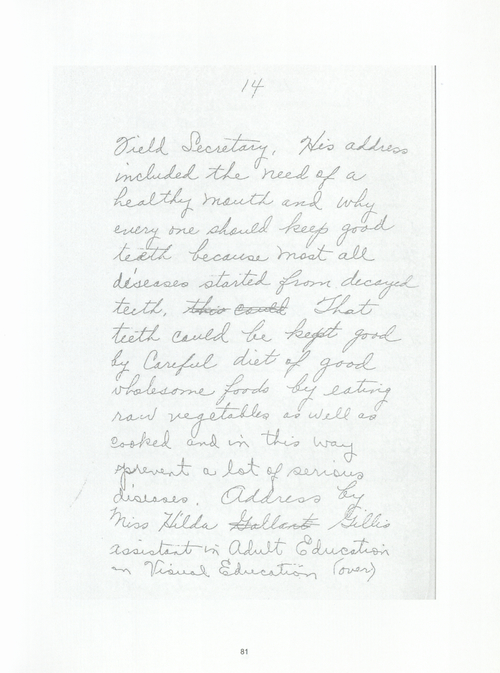 14
Field Secretary. His address
included the need of a
healthy mouth and why
every one should keep good
teeth because most all
diseases started from decayed
teeth. this could That
teeth could be kept good
by Careful diet of good
wholesome foods by eating
raw vegetables as well as
cooked and in this way
prevent a lot of serious
diseases. Address by
Miss Hilda Gallant Gillis
assistant in Adult Education
on Visual Education (over)
81